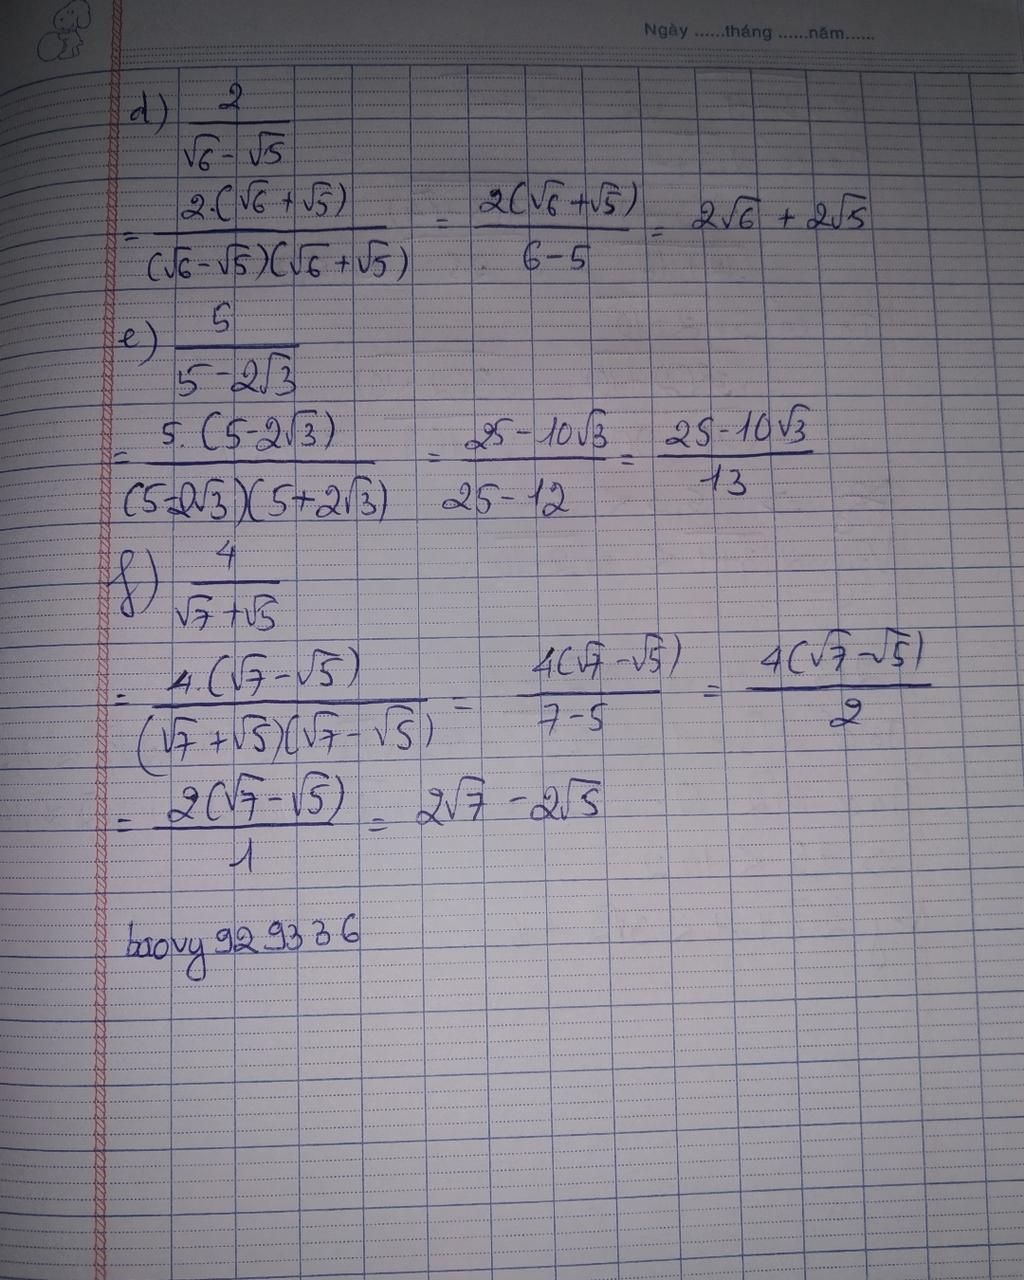 Ngày ......tháng ......năm......
d) 2/(√6 - √5)
= 2.(√6 + √5)/((√6 - √5)(√6 + √5)) = 2(√6 + √5)/(6 - 5) = 2√6 + 2√5
e) 5/(5 - 2√3)
= 5.(5 - 2√3)/((5 - 2√3)(5 + 2√3)) = (25 - 10√3)/(25 - 12) = (25 - 10√3)/13
f) 4/(√7 + √5)
= 4.(√7 - √5)/((√7 + √5)(√7 - √5)) = 4(√7 - √5)/(7 - 5) = 4(√7 - √5)/2
= 2(√7 - √5)/1 = 2√7 - 2√5
baovy929336